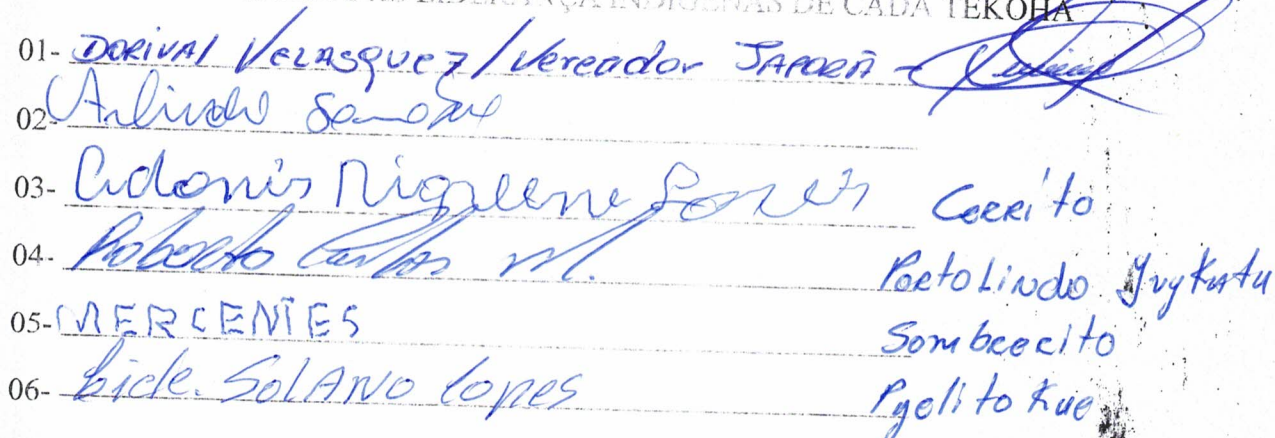 LIDERANÇA INDIGENAS DE CADA TEKOHA
01- DORIVAL VELASQUEZ / Vereador JAPORÃ -
02 Arlindo
03- Adonis Cerrito
04- Roberto Carlos M. PortoLindo YvyKatu
05- MERCENTES Sombrerito
06- Lide. SOLANO Lopes Pyelito Kue